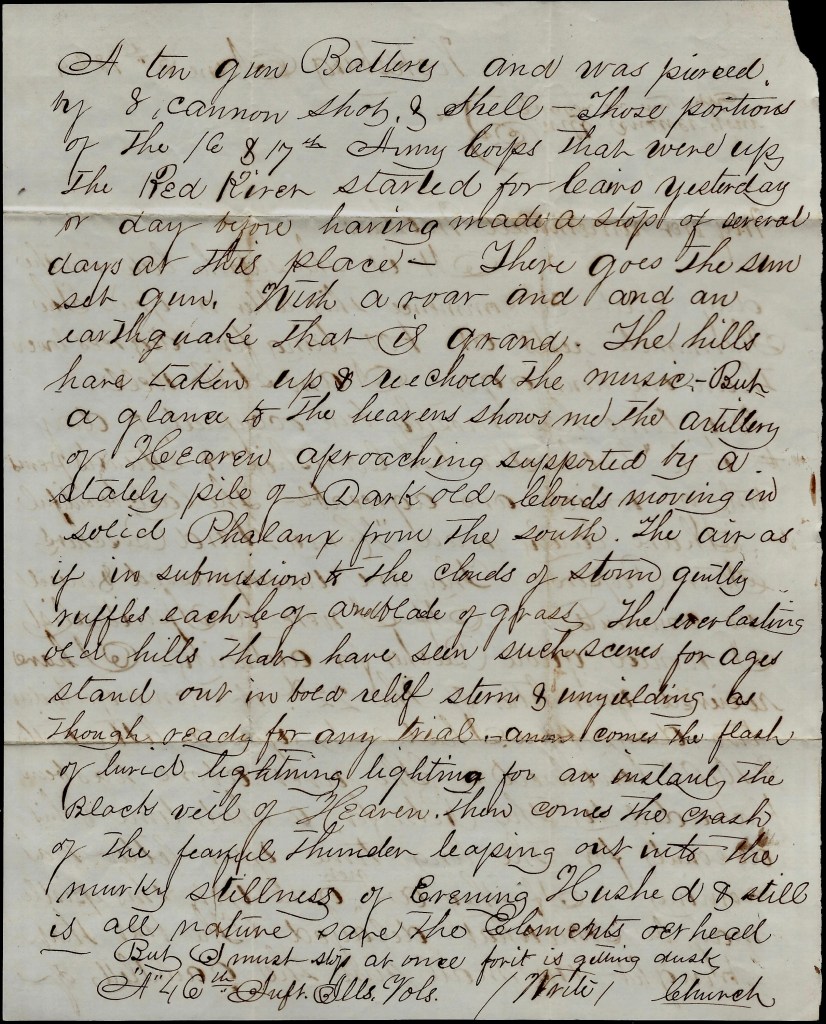 A ten gun Battery and was pierced
by 8, cannon shot, & shell – Those portions
of the 16 & 17th Army Corps that were up
the Red River started for Cairo yesterday
or day before having made a stop of several
days at this place – There goes the sun
set gun. With a roar and and an
earthquake that is grand. The hills
have taken up & reechoed the music – But
a glance to the heavens shows me the artillery
of Heaven aproaching supported by a
stately pile of Dark old Clouds moving in
solid Phalanx from the south. The air as
if in submission to the clouds of storm gently
ruffles each leaf and blade of grass The everlasting
old hills that have seen such scenes for ages
stand out in bold relief stern & unyielding as
though ready for any trial – anon comes the flash
of lurid lightning lighting for an instant, the
Black veil of Heaven. then comes the crash
of the fearful thunder leaping out into the
murky stillness of Evening Hushed & still
is all nature save the Elements overhead
But I must stop at once for it is getting dusk
"A" 46th Inft. Ills. Vols. /Write/ Church